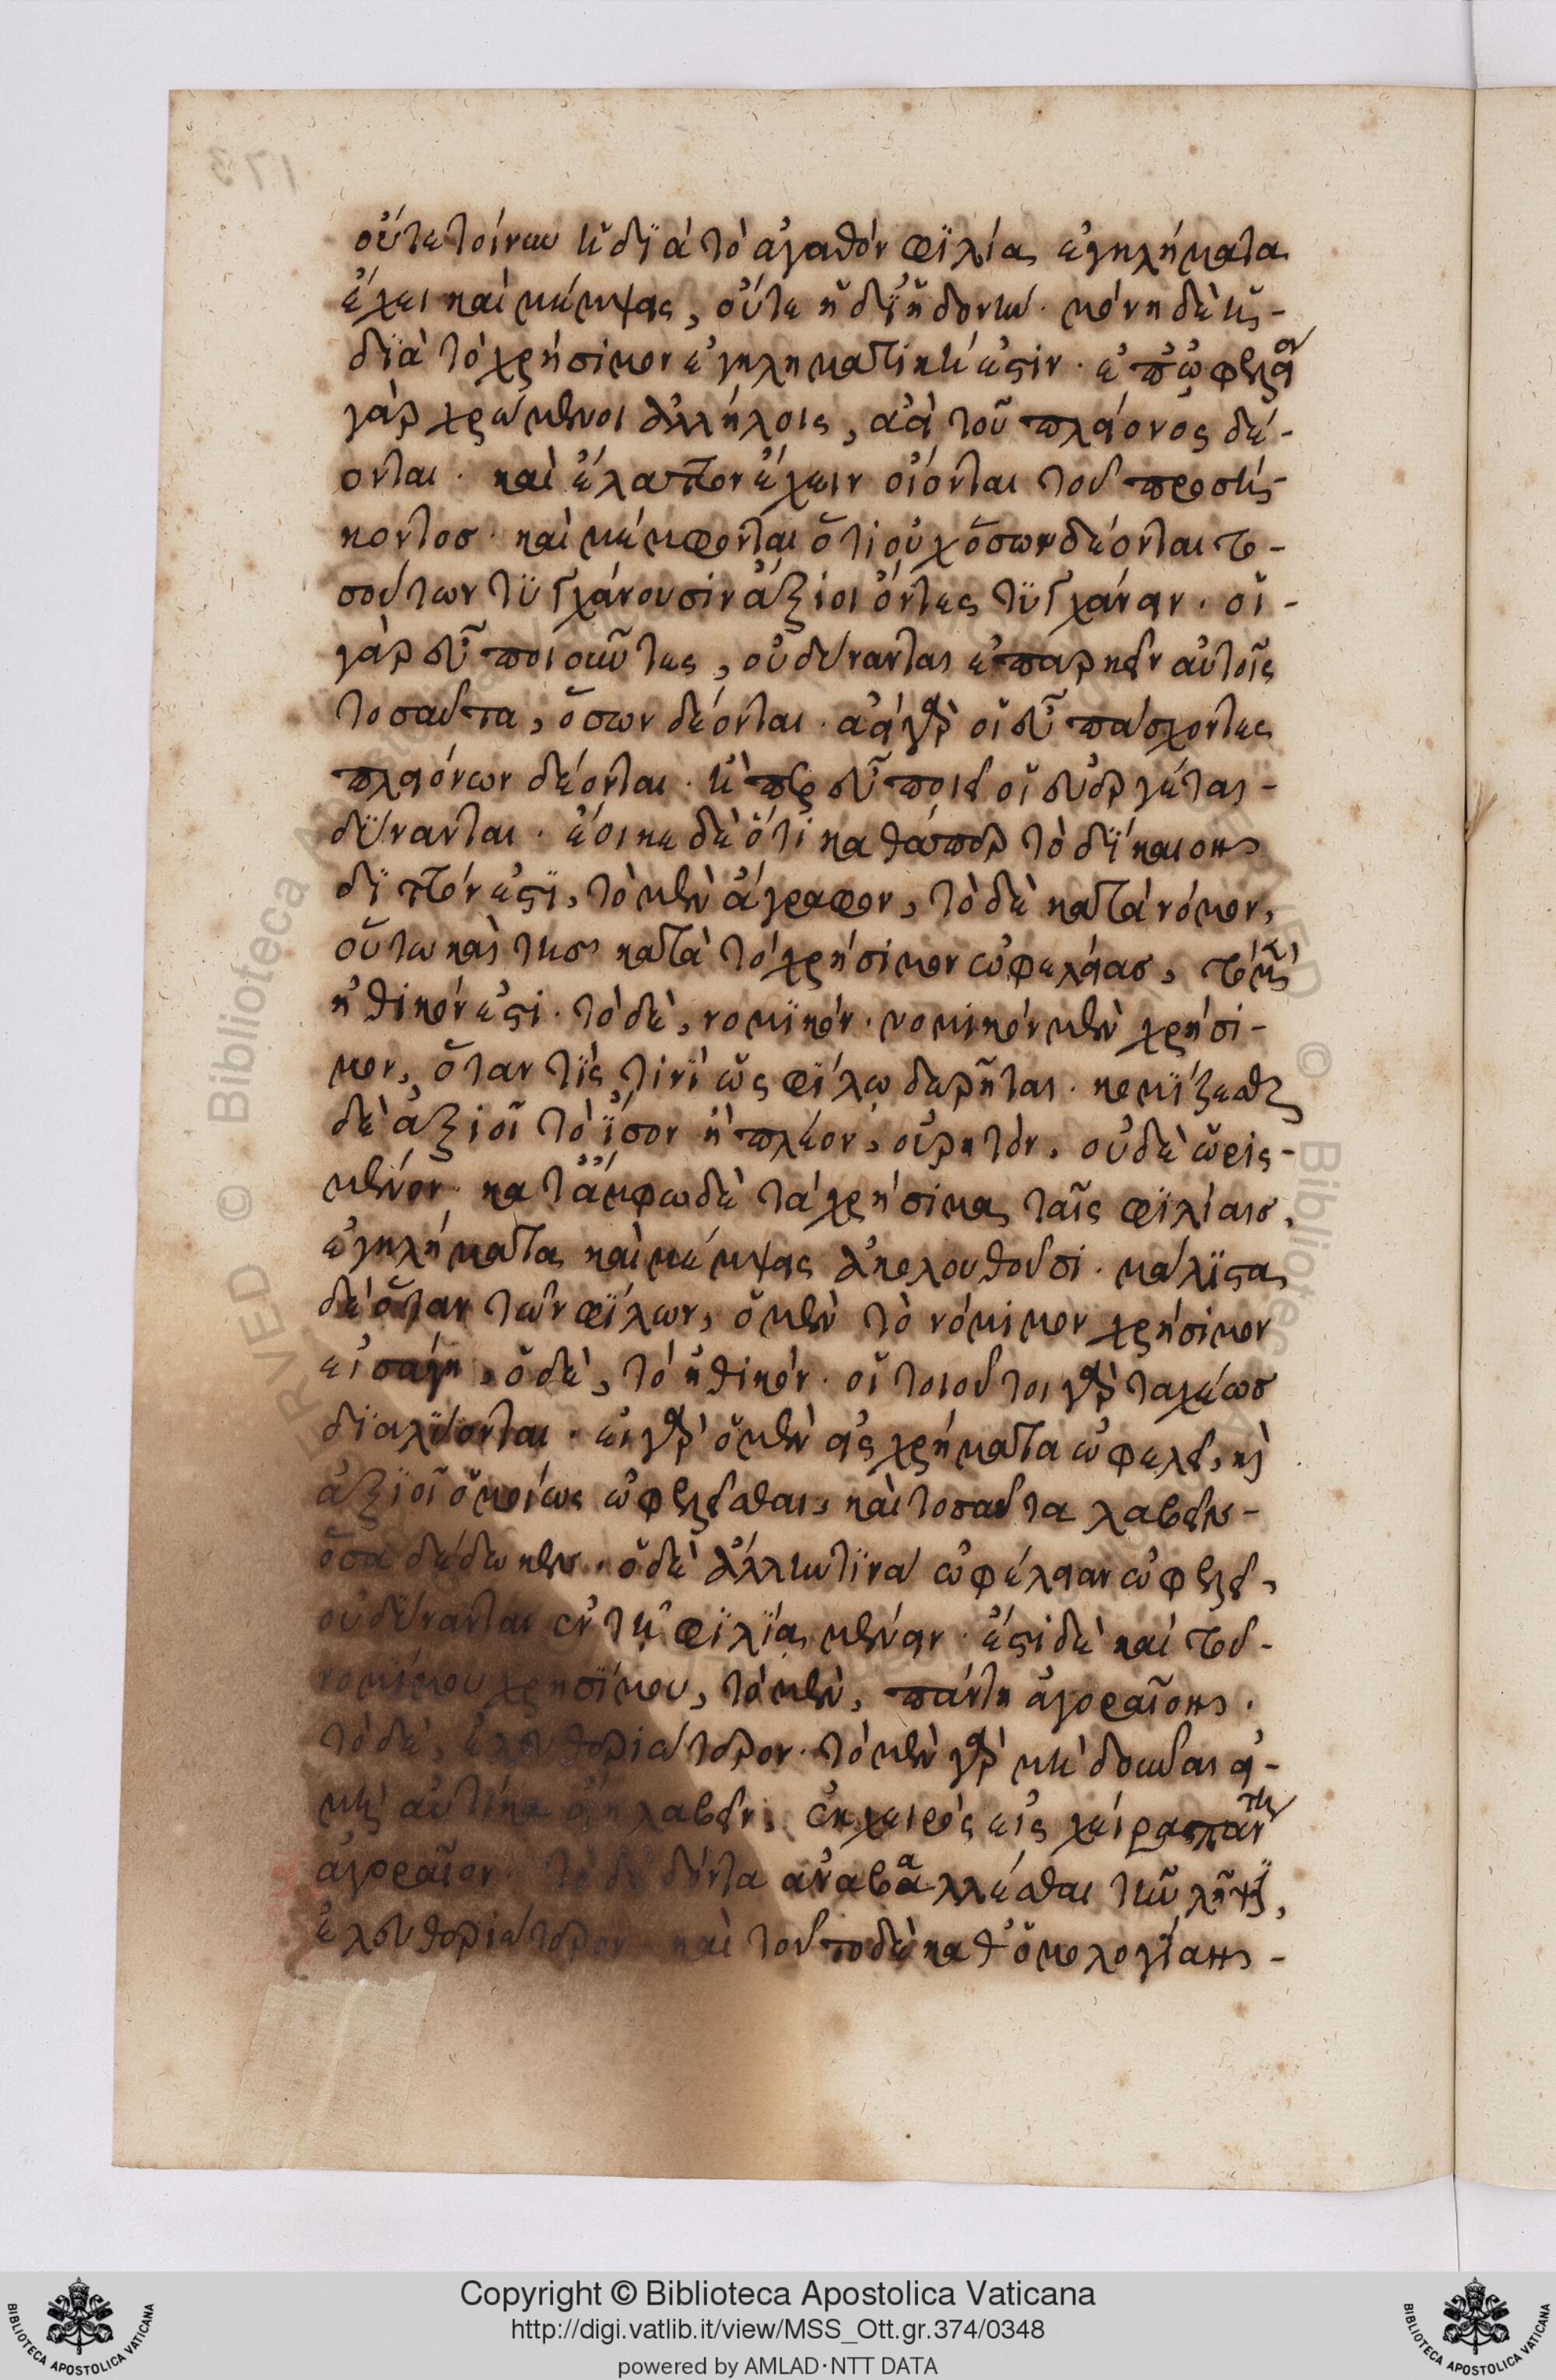 173
οὔτε τοίνυν ἡ διὰ τὸ ἀγαθὸν φιλία ἐγκλήματα
ἔχει καὶ μέμψεις, οὔτε ἡ δι' ἡδονήν. μόνη δὲ ἡ
διὰ τὸ χρήσιμον ἐγκληματική ἐστιν. ἐπ' ὠφελείᾳ
γὰρ χρώμενοι ἀλλήλοις, ἀεὶ τοῦ πλείονος δέ-
ονται. καὶ ἔλαττον ἔχειν οἴονται τοῦ προσή-
κοντος. καὶ μέμφονται ὅτι οὐχ ὅσων δέονται το-
σούτων τυγχάνουσιν ἄξιοι ὄντες τυγχάνειν. οἱ
γὰρ εὖ ποιοῦντες, οὐ δύνανται ἐπαρκεῖν αὐτοῖς
τοσαῦτα, ὅσων δέονται. ἀεὶ γὰρ οἱ εὖ πάσχοντες
πλειόνων δέονται. ἤπερ εὖ ποιεῖν οἱ εὐεργέται
δύνανται. ἔοικε δὲ ὅτι καθάπερ τὸ δίκαιον
διττόν ἐστι, τὸ μὲν ἄγραφον, τὸ δὲ κατὰ νόμον,
οὕτω καὶ τῆς κατὰ τὸ χρήσιμον ὠφελείας, τὸ μὲν
ἠθικόν ἐστι. τὸ δὲ, νομικόν. νομικὸν μὲν χρήσι-
μον, ὅταν τίς τινὶ ὡς φίλῳ δωρῆται. κομίζεσθαι
δὲ ἀξιοῖ τὸ ἴσον ἢ πλέον, οὐ ῥητόν, οὐδὲ ὡρισ-
μένον. κατ' ἄμφω δὲ τὰ χρήσιμα ταῖς φιλίαις,
ἐγκλήματα καὶ μέμψεις ἀκολουθοῦσι. μάλιστα
δὲ ὅταν τῶν φίλων, ὁ μὲν τὸ νόμιμον χρήσιμον
εἰσάγῃ, ὁ δὲ, τὸ ἠθικόν. οἱ τοιοῦτοι γὰρ ταχέως
διαλύονται. εἰ γὰρ ὁ μὲν εἰς χρήματα ὠφελεῖ, καὶ
ἀξιοῖ ὁμοίως ὠφελεῖσθαι, καὶ τοσαῦτα λαβεῖν
ὅσα δέδωκεν. ὁ δὲ ἄλλην τινὰ ὠφέλειαν ὠφελεῖ,
οὐ δύνανται ἐν τῇ φιλίᾳ μένειν. ἔστι δὲ καὶ τοῦ
νομίμου χρησίμου, τὸ μὲν, πάντη ἀγοραῖον.
τὸ δὲ, ἐλευθεριώτερον. τὸ μὲν γὰρ μὴ δοῦναι εἰ
μὴ αὐτίκα λαβεῖν, ἐκ χειρὸς εἰς χεῖρας πάντη
ἀγοραῖον. τὸ δὲ δόντα ἀναβάλλεσθαι τὴν λῆψιν,
ἐλευθεριώτερον. καὶ τοῦτο δὲ καθ' ὁμολογίαν
Copyright © Biblioteca Apostolica Vaticana
http://digi.vatlib.it/view/MSS_Ott.gr.374/0348
powered by AMLAD·NTT DATA